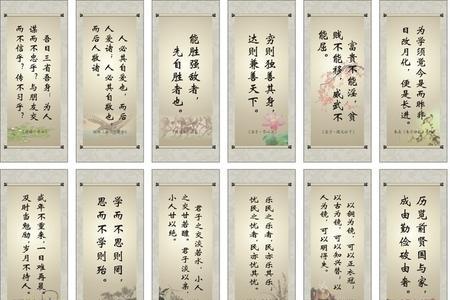 吾日三省吾身，为人
谋而不忠乎？与朋友交
而不信乎？传不习乎？
人必其自爱也，而后
人爱诸；人必其自敬也，
而后人敬诸。
能胜强敌者，
先自胜者也。
穷则独善其身，
达则兼善天下。
富贵不能淫，贫
贱不能移，威武不
能屈。
为学须觉今是而昨非，
日改月化，便是长进。
盛年不重来，一日难再晨。
及时当勉励，岁月不待人。
学而不思则罔，
思而不学则殆。
君子之交淡若水，小人
之交甘若醴。君子淡以亲，
小人甘以绝。
乐民之乐者，民亦乐其乐；
忧民之忧者，民亦忧其忧。
以铜为镜，可以正衣冠，
以古为镜，可以知兴替，以
人为镜，可以明得失。
历览前贤国与家，
成由勤俭破由奢。